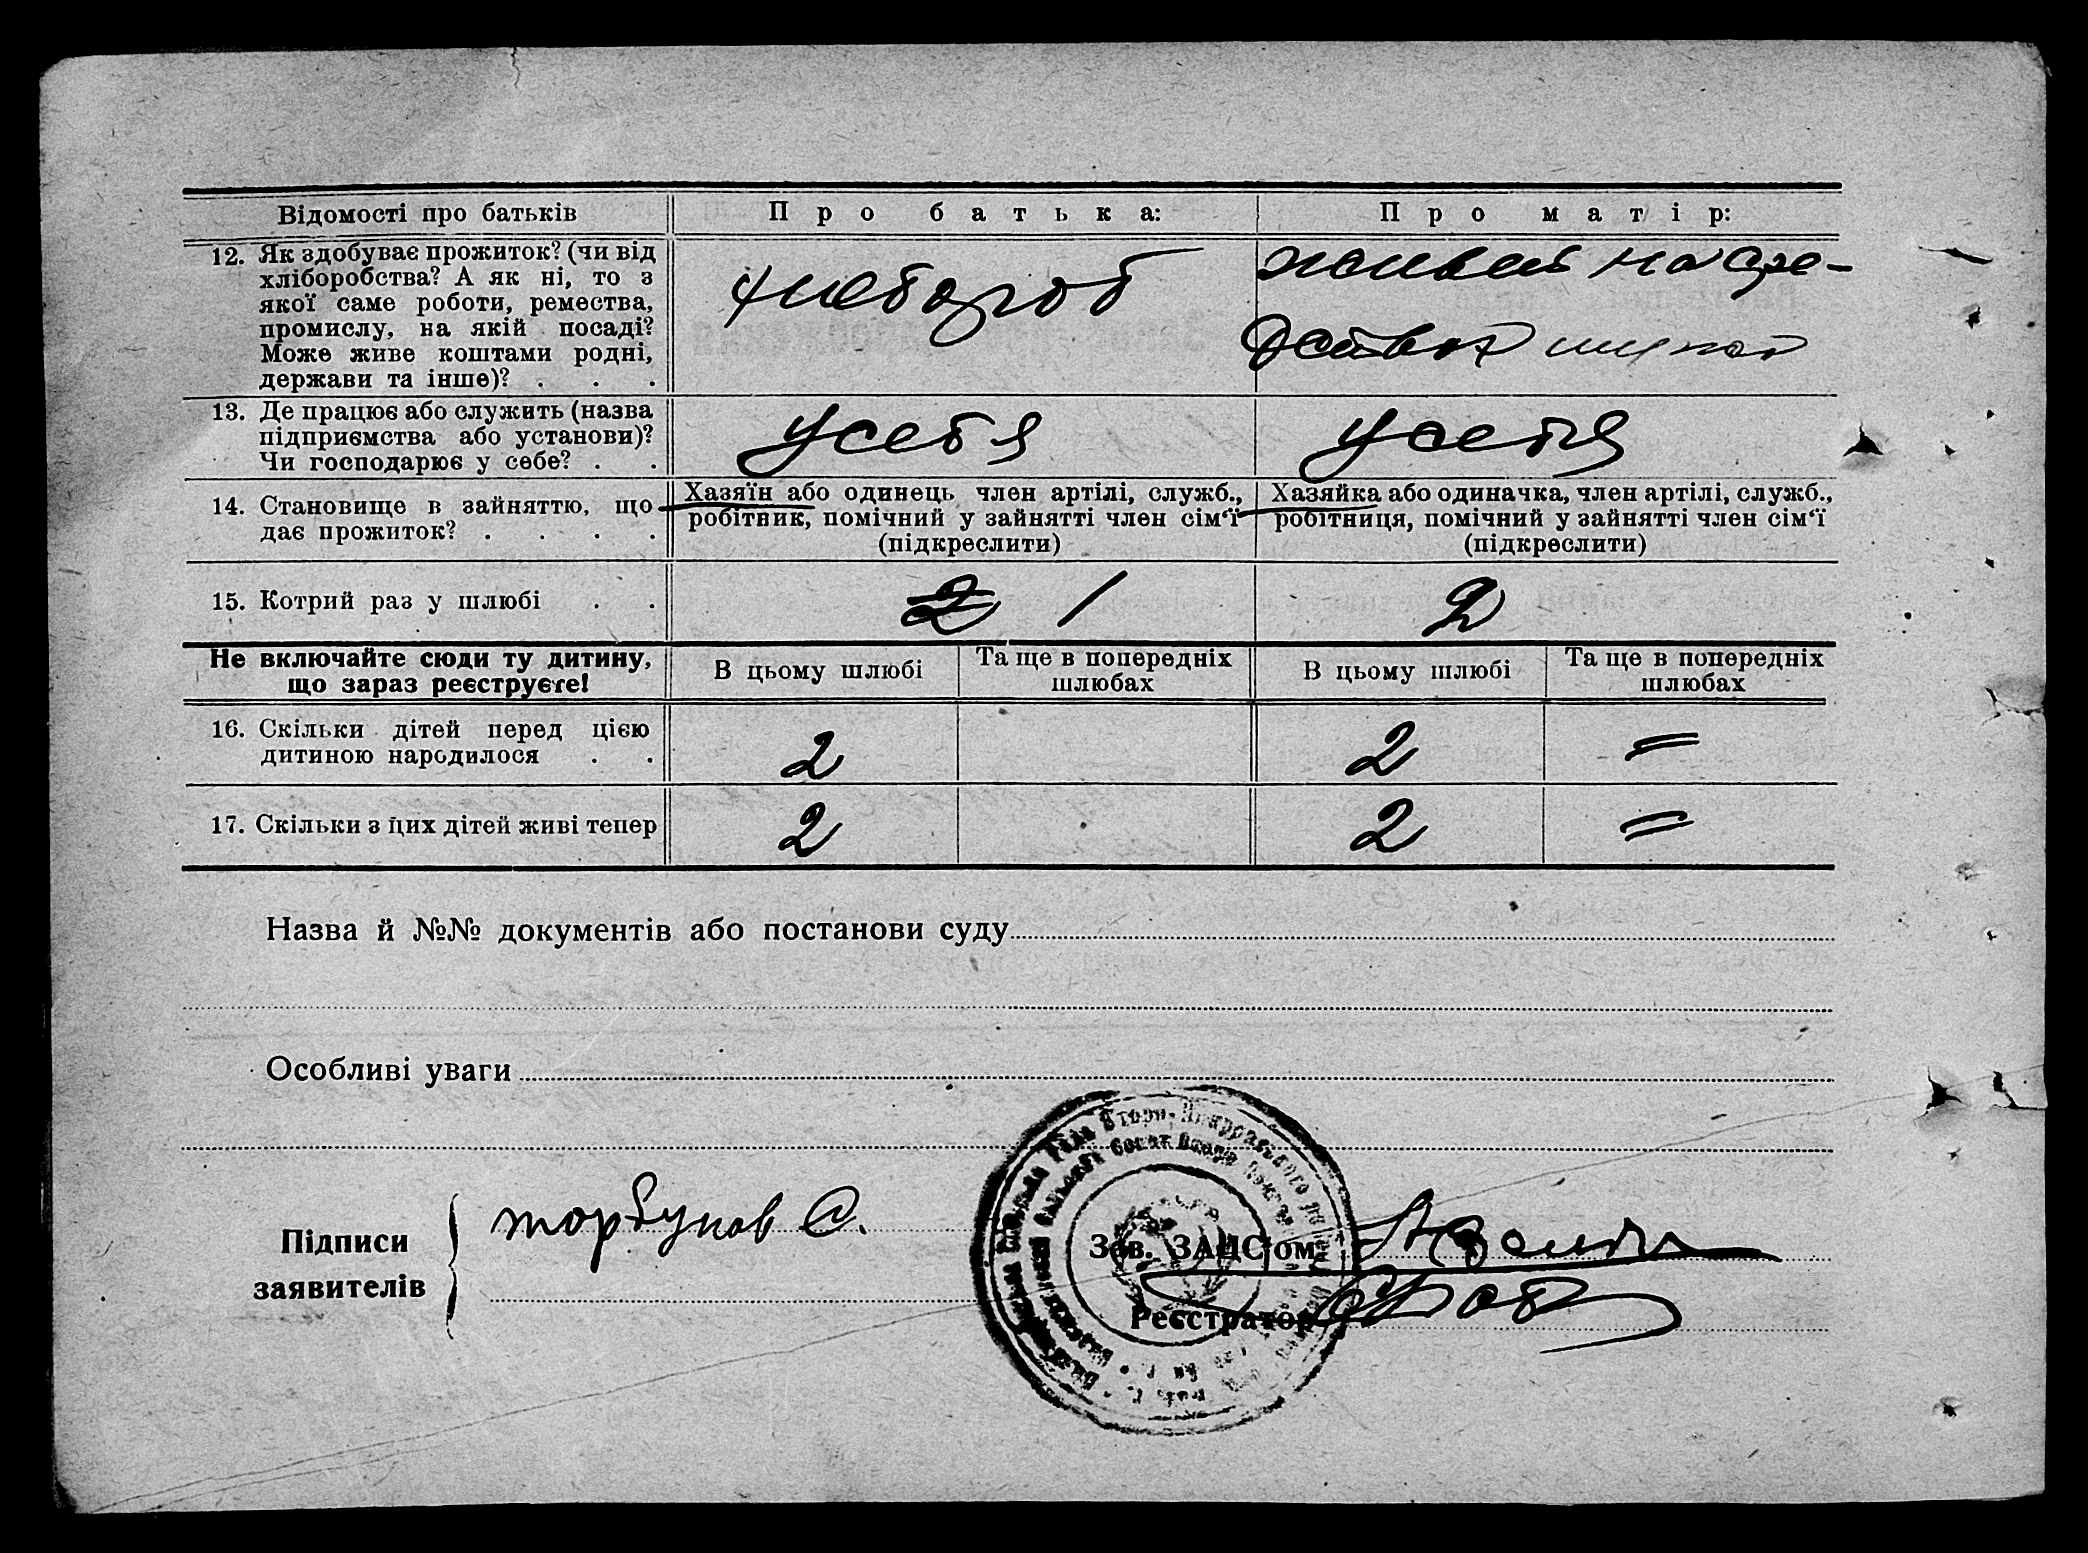 Відомості про батьків
Про батька:
Про матір:
12. Як здобуває прожиток? (чи від
хліборобства? А як ні, то з
якої саме роботи, ремества,
промислу, на якій посаді?
Може живе коштами родні,
держави та інше)? . . .
хлебороб
живет на сре-
дства мужа
13. Де працює або служить (назва
підприємства або установи)?
Чи господарює у себе? . .
усебя
усебя
14. Становище в зайняттю, що
дає прожиток? . . . .
Хазяїн або одинець член артілі, служб.,
робітник, помічний у зайнятті член сім'ї
(підкреслити)
Хазяйка або одиначка, член артілі, служб.,
робітниця, помічний у зайнятті член сім'ї
(підкреслити)
15. Котрий раз у шлюбі . .
2 1
2
Не включайте сюди ту дитину,
що зараз реєструєте!
В цьому шлюбі
Та ще в попередніх
шлюбах
В цьому шлюбі
Та ще в попередніх
шлюбах
16. Скільки дітей перед цією
дитиною народилося . .
2
2
=
17. Скільки з цих дітей живі тепер
2
2
=
Назва й №№ документів або постанови суду
Особливі уваги
Підписи
заявителів
Горбунов С.
Зав. ЗАЦС'ом
Реєстратор